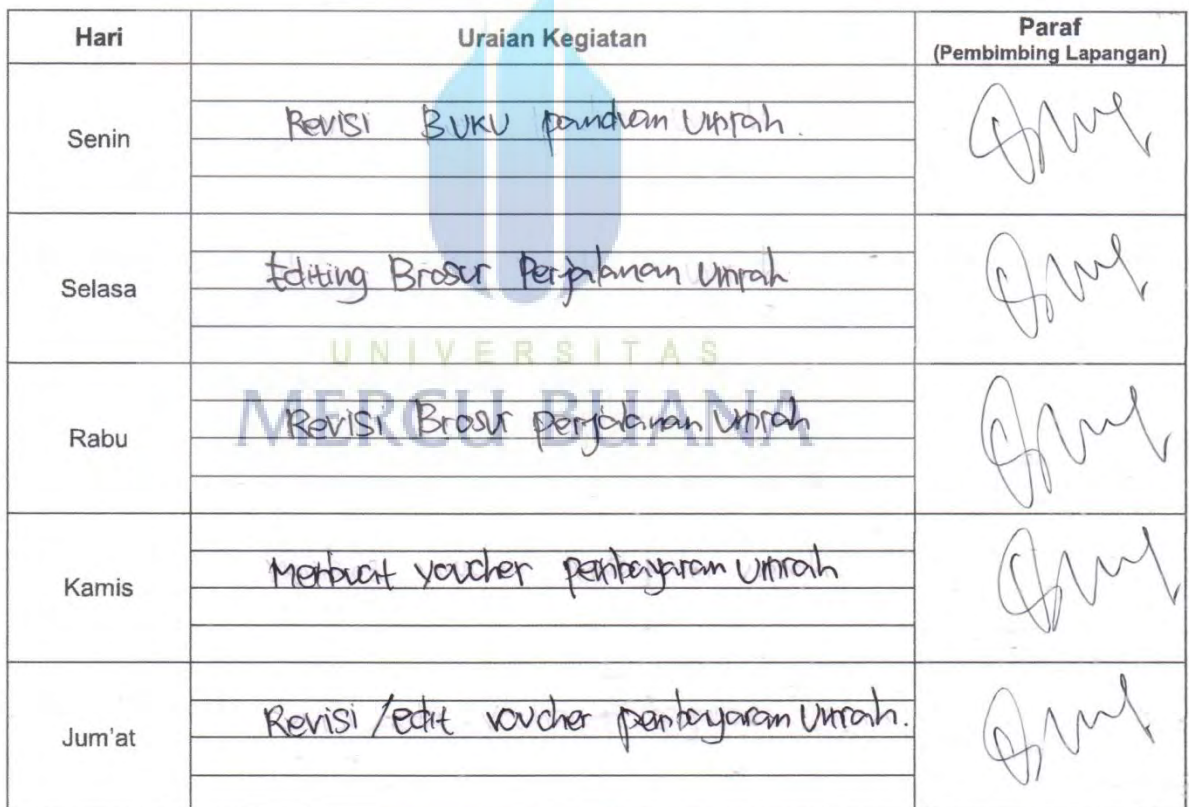 Hari Uraian Kegiatan Paraf
(Pembimbing Lapangan)
Senin Revisi Buku panduan Umrah.
Selasa Editing Brosur Perjalanan Umrah
UNIVERSITAS
MERCU BUANA
Rabu Revisi Brosur perjalanan Umrah
Kamis Membuat voucher pembayaran Umrah
Jum'at Revisi /edit voucher pembayaran Umrah.